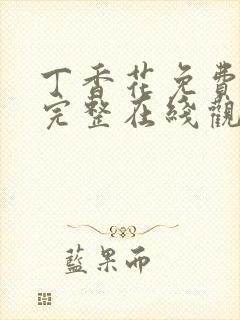 丁香花免費
完整在綫觀
藍果而